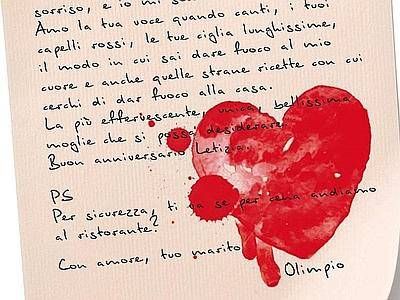 sorriso, e io mi so
Amo la tua voce quando canti, i tuoi
capelli rossi, le tue ciglia lunghissime,
il modo in cui sai dare fuoco al mio
cuore e anche quelle strane ricette con cui
cerchi di dar fuoco alla casa.
La più effervescente, unica, bellissima
moglie che si possa desiderare.
Buon anniversario Letizia.
PS
Per sicurezza, ti va se per cena andiamo
al ristorante?
Con amore, tuo marito
Olimpio